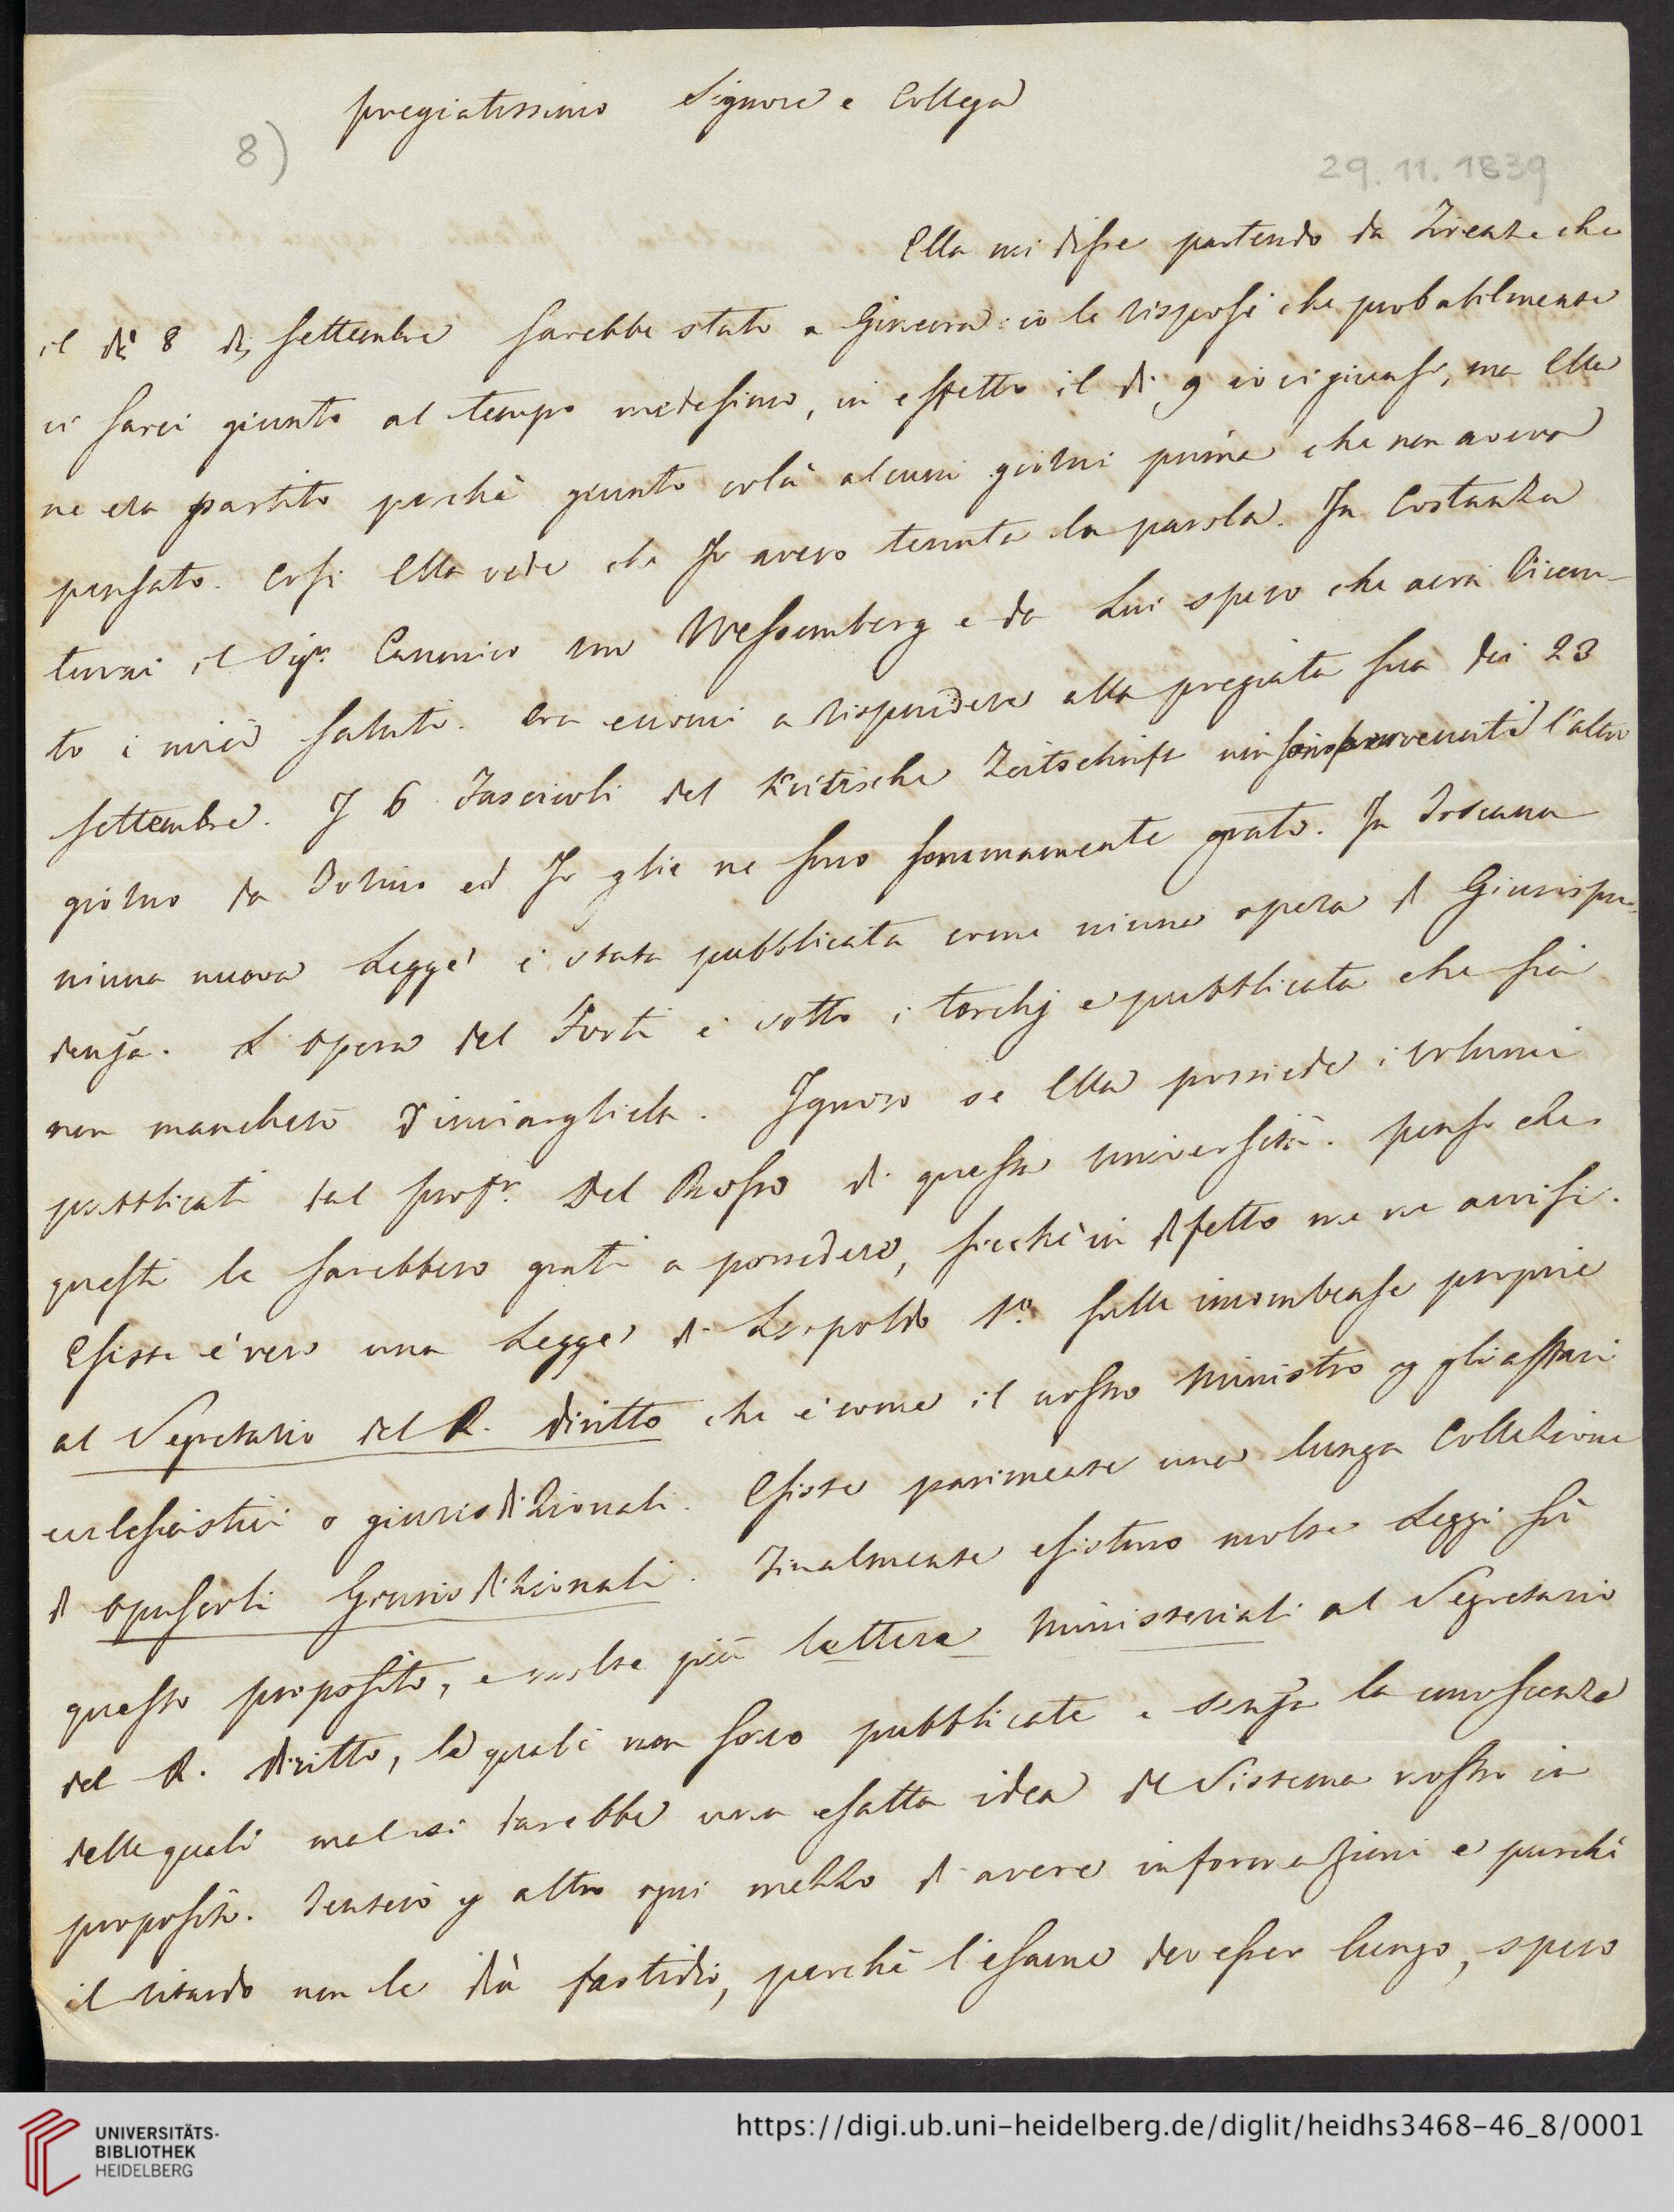 pregiatissimo Signore e Collega
8)
29. 11. 1839
Ella mi disse partendo da Firenze che
il dì 8 di settembre sarebbe stato a Ginevra: io le risposi che probabilmente
vi sarei giunto al tempo medesimo, in effetto il dì 9 io vi giunsi, ma Ella
ne era partito perchè giunto colà alcuni giorni prima che non aveva
pensato. Così Ella vede che Io avevo tenuta la parola. In Costanza
trovai il Sigr. Canonico von Wessemberg e da Lui spero che avrà ricevu-
to i miei saluti. Ora eccomi a rispondere alla pregiata sua dei 23
settembre. I 6 Fascicoli del Kritische Zeitschrift mi sono pervenuti l'altro
giorno da Torino ed Io glie ne sono sommamente grato. In Toscana
niuna nuova Legge è stata pubblicata come niuna opera di Giurispru-
denza. L'opera del Forti è sotto i torchj e pubblicata che sia
non mancherò d'inviargliela. Ignoro se Ella possiede i volumi
pubblicati dal profr. Del Rosso di questa università. penso che
questi le sarebbero grati a possedere, sicchè in difetto me ne avvisi.
Esiste è vero una Legge di Leopoldo 1o. sulle incombense proprie
al Segretario del R. diritto che è come il vostro Ministro p gli affari
ecclesiastici o giurisdizionali. Esiste parimente una lunga Collezione
di opuscoli Giurisdizionali. Finalmente esistono molte Leggi sù
questo proposito, e molte più lettere Ministeriali al Segretario
del R. diritto, le quali non sono pubblicate e senza la conoscenza
delle quali mal si darebbe una esatta idea del Sistema nostro in
proposito. Tenterò p altro ogni mezzo di avere informazioni e purchè
il ritardo non le dia fastidio, perchè l'esame dev'esser lungo, spero
UNIVERSITÄTS-
BIBLIOTHEK
HEIDELBERG
https://digi.ub.uni-heidelberg.de/diglit/heidhs3468-46_8/0001